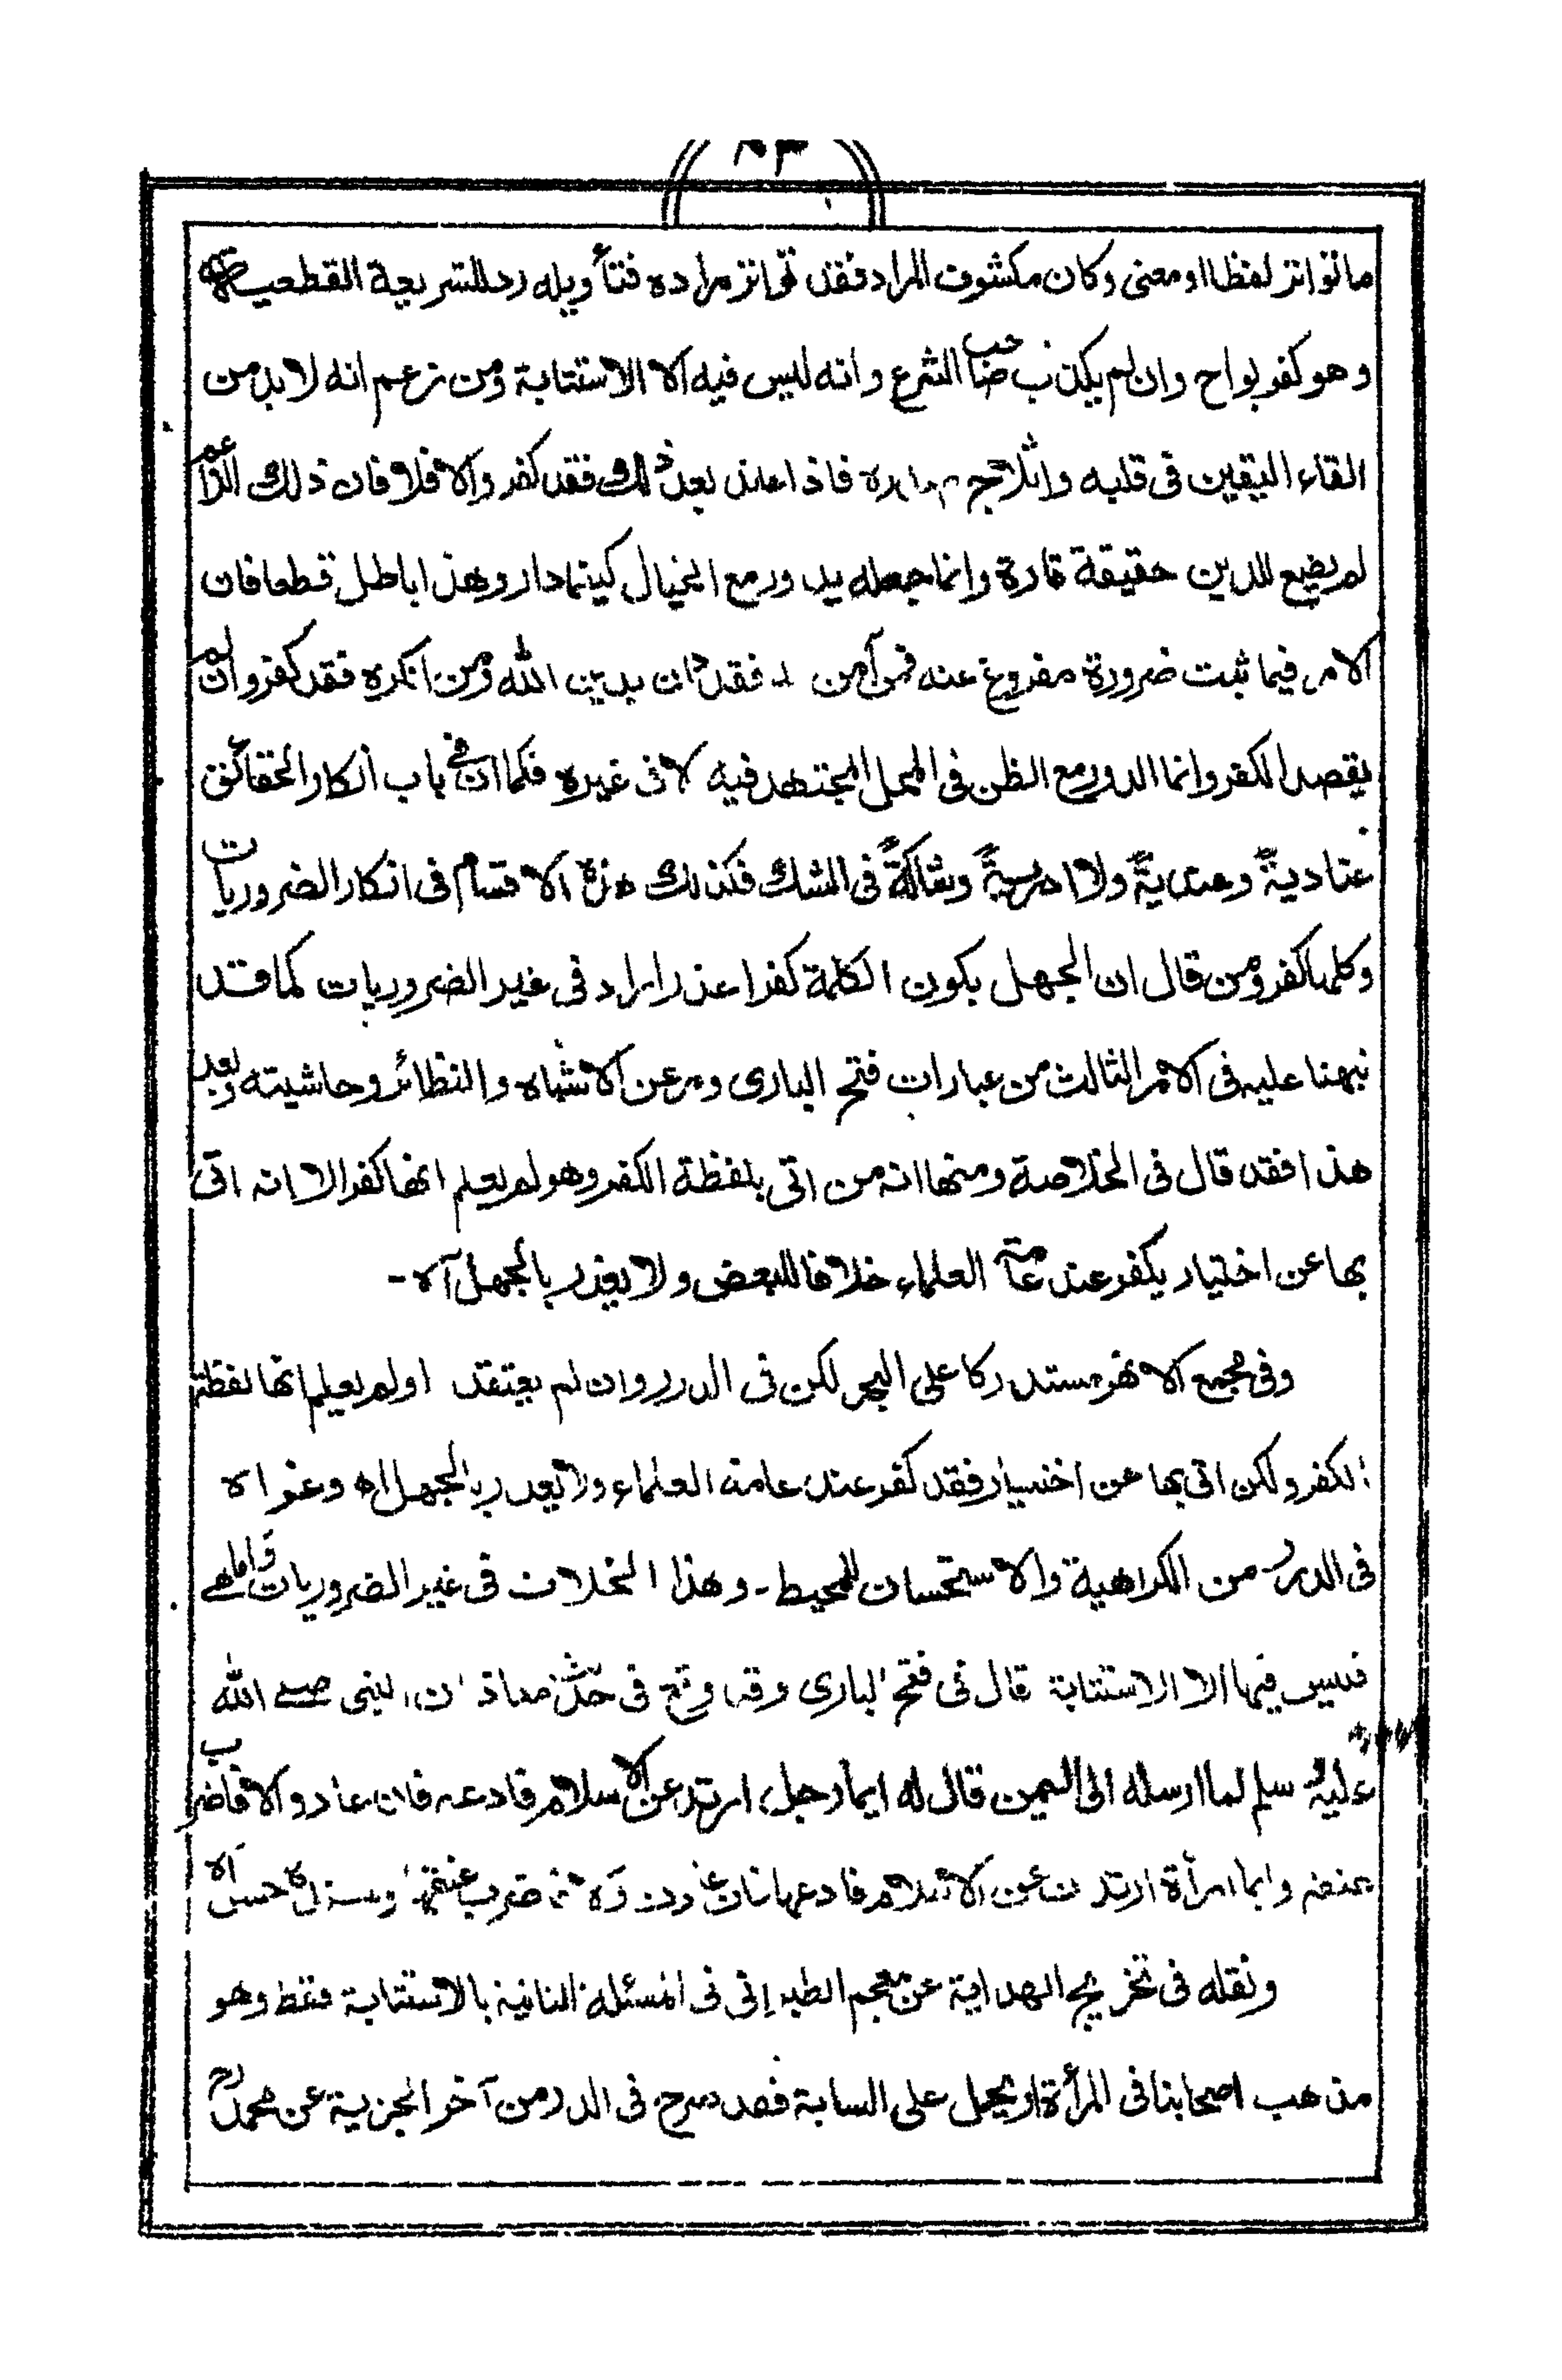 ما تواتر لفظا او معنى وكان مكشوف المراد فقد تواتر مراده فتأويله رد للشريعة القطعية
وهو كفر بواح وان لم يكذب صاحب الشرع وانه ليس فيه الا الاستتابة ومن زعم انه لا بد من
القاء اليقين فى قلبه واثلاج فاذا عاند بعد ذلك فقد كفر والا فلا فان ذلك الزاعم
لم يضع للدين حقيقة قارة وانما جعله يدور مع الخيال كيفما دار وهذا باطل قطعا فان
الامر فيما ثبت ضرورة مفروغ عنه فمن آمن فقد دان بدين الله ومن انكره فقد كفر وان لم
يقصد الكفر وانما الدور مع الظن فى المحل المجتهد فيه لا فى غيره فكما ان فى باب انكار الحقائق
عنادية وعندية ولاادرية وشاكة فى الشك فكذلك هذه الاقسام فى انكار الضروريات
وكلها كفر ومن قال ان الجهل بكون الكلمة كفرا عذر اراد فى غير الضروريات كما قد
نبهنا عليه فى الامر الثالث من عبارات فتح البارى ومر عن الاشباه والنظائر وحاشيته وبعد
هذا فقد قال فى الخلاصة ومنها انه من اتى بلفظة الكفر وهو لم يعلم انها كفر الا انه اتى
بها عن اختيار يكفر عند عامة العلماء خلافا للبعض ولا يعذر بالجهل آه -
وفى مجمع الانهر مستدركا على البحر لكن فى الدرر وان لم يعتقد اولم يعلم انها لفظة
الكفر ولكن اتى بها عن اختيار فقد كفر عند عامة العلماء ولا يعذر بالجهل اه وعزاه
فى الدرر من الكراهية والاستحسان للمحيط - وهذا الخلاف فى غير الضروريات واما هى
فليس فيها الا الاستتابة قال فى فتح البارى وقد وقع فى حديث معاذ ان النبى صلى الله
عليه وسلم لما ارسله الى اليمن قال له ايما رجل ارتد عن الاسلام فادعه فان عاد والا فاضرب
عنقه وايما امرأة ارتدت عن الاسلام فادعها فان عادت والا فاضرب عنقها وسنده حسن آه
ونقله فى تخريج الهداية عن معجم الطبرانى فى المسئلة الثانية بالاستتابة فقط وهو
مذهب اصحابنا فى المرأة او يحمل على السابة فقد صرح فى الدر من آخر الجزية عن محمد رح